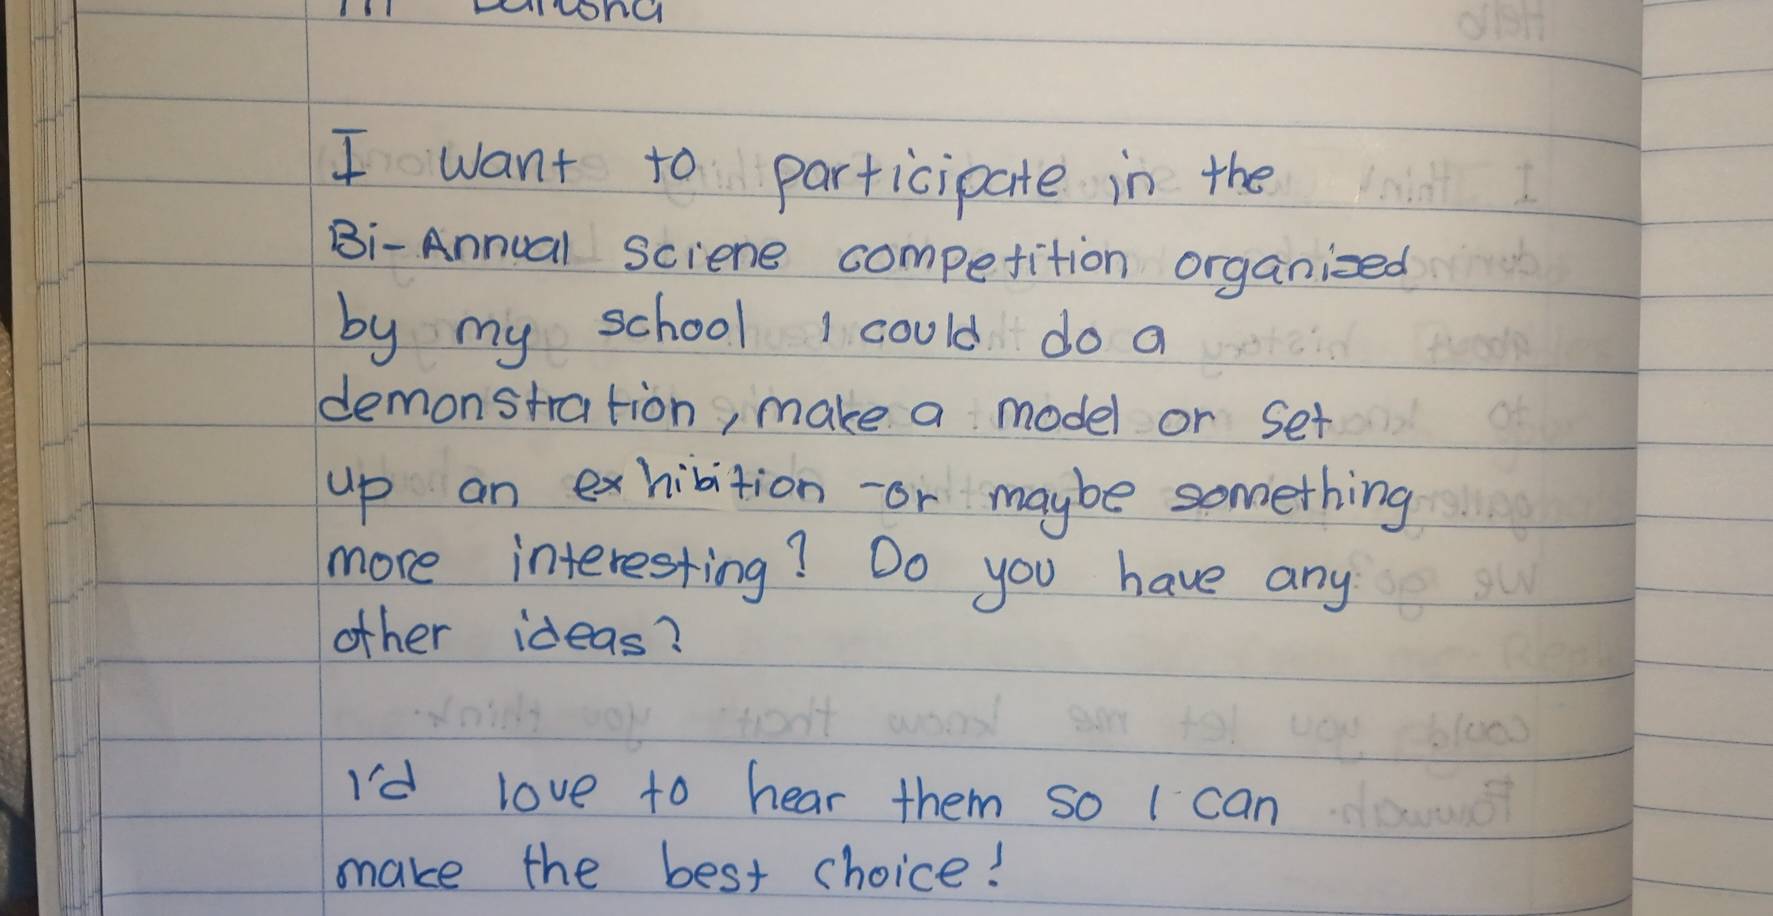 I want to participate in the
Bi-Annual Sciene competition organised
by my school I could do a
demonstration, make a model or set
up an exhibition - or maybe something
more interesting? Do you have any
other ideas?
I'd love to hear them so I can
make the best choice!